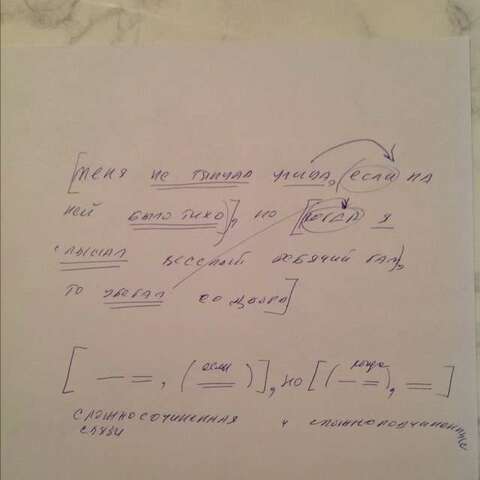 [меня не тянула улица, (если на
ней было тихо)], но [(когда я
слышал веселый ребячий гам),
то убегал со двора]
[ — =, (если =)], но [(когда — =), = ]
сложносочиненная и сложноподчиненная
связи